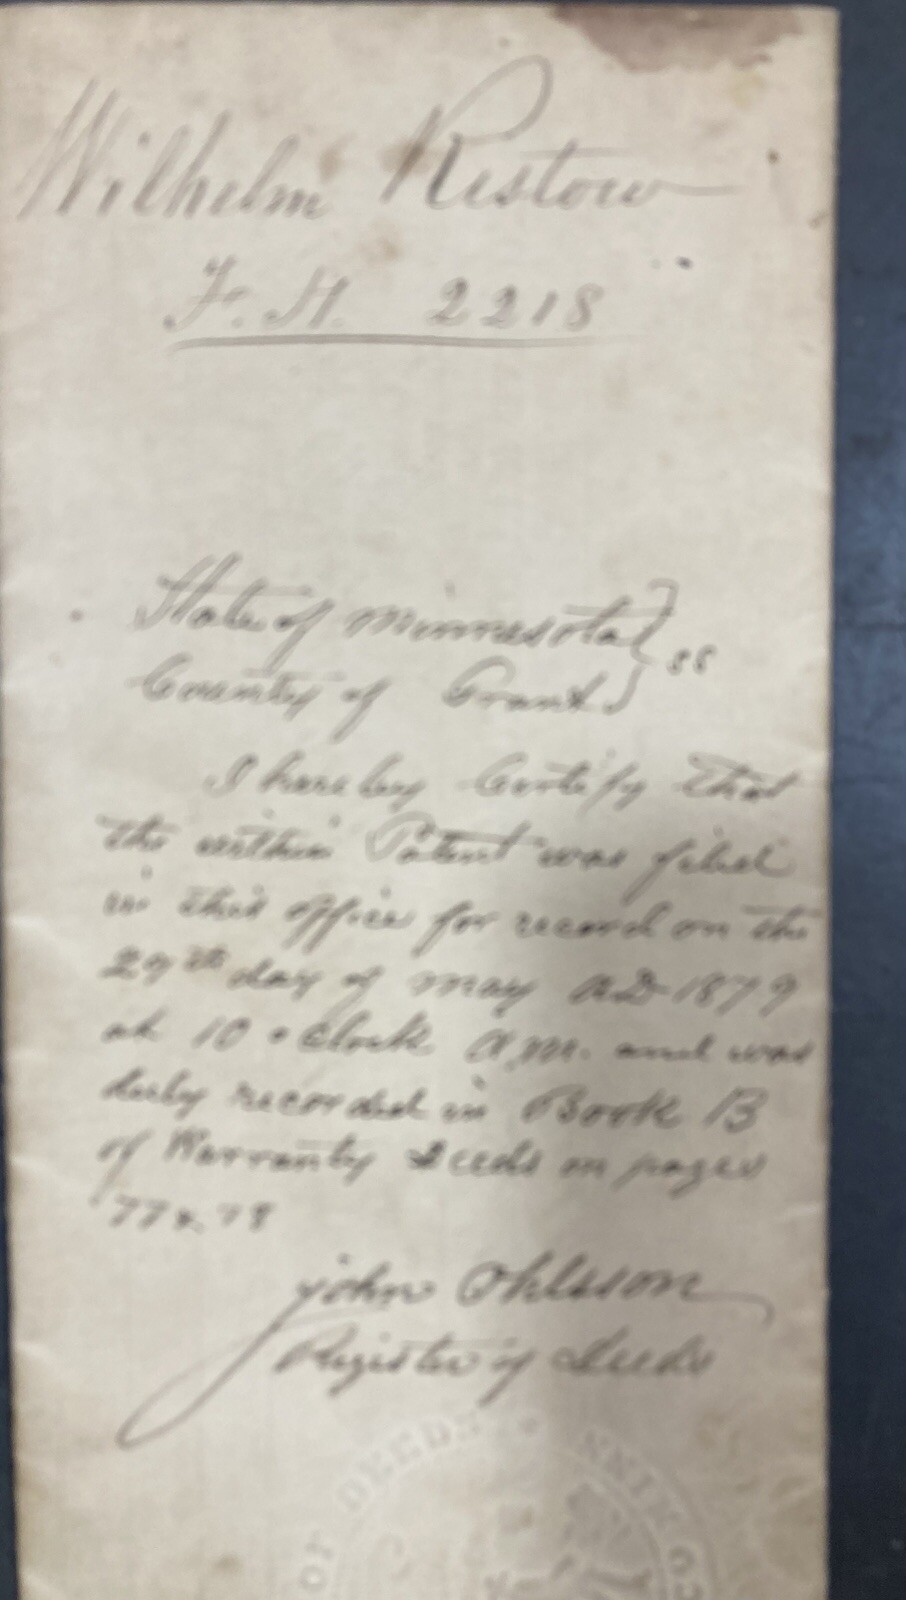 Wilhelm Ristow
F. H. 2218
State of Minnesota } ss
County of Grant }
I hereby Certify that
the within Patent was filed
in this office for record on the
29th day of May AD 1879
at 10 o Clock A.M. and was
duly recorded in Book B
of Warranty Deeds on pages
77 & 78
John Ohlsson
Register of Deeds
OF DEEDS